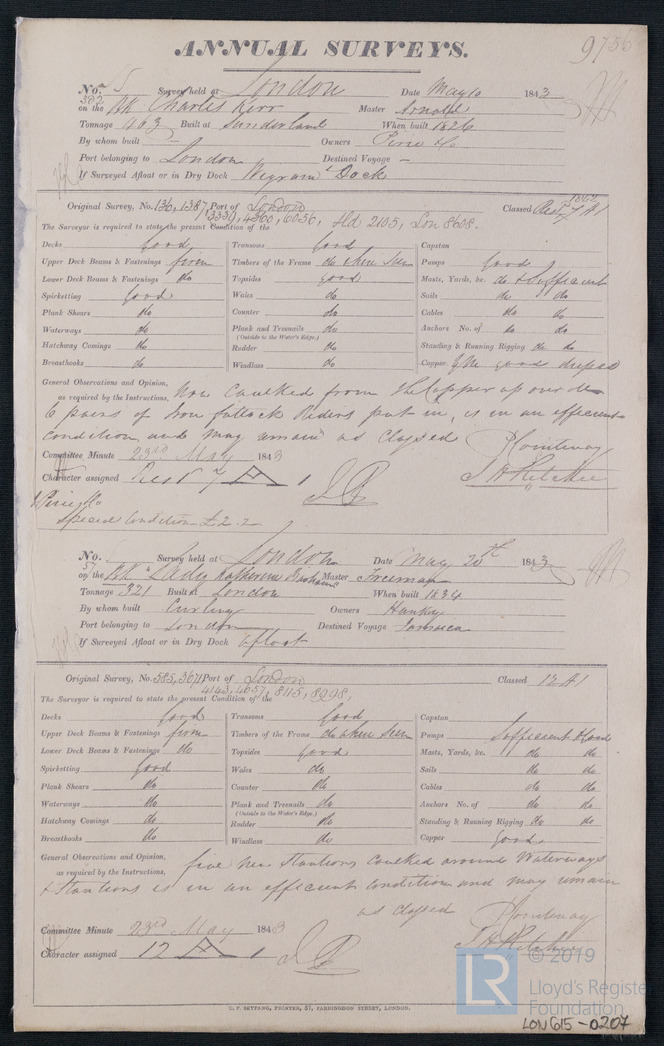 ANNUAL SURVEYS.
9736
No. 5 Survey held at London Date May 10 1843
382
on the BK Charles Kerr Master Arnold
Tonnage 463 Built at Sunderland When built 1826
By whom built — Owners Pirie & Co
Port belonging to London Destined Voyage —
If Surveyed Afloat or in Dry Dock Wigrams Dock
Original Survey, No. 136, 1387, Port of London Classed Rest 7 A1
3331, 4360, 6056, Hld 2105, Lon 8608.
The Surveyor is required to state the present Condition of the
Decks Good Transoms Good Capstan
Upper Deck Beams & Fastenings firm Timbers of the Frame do when seen Pumps Good
Lower Deck Beams & Fastenings do Topsides good Masts, Yards, &c. do & sufficient
Spirketting Good Wales do Sails do do
Plank Shears do Counter do Cables do do
Waterways do Plank and Treenails do Anchors No. of do do
(Outside to the Water's Edge.)
Hatchway Comings do Rudder do Standing & Running Rigging do do
Breasthooks do Windlass do Copper good
General Observations and Opinion, Now Caulked from the Copper up
as required by the Instructions,
6 pairs of Iron futtock Riders put in, is in an efficient
condition and may remain as Classed
Committee Minute 23rd May 1843
Character assigned Rest 7 A 1
Pirie & Co
Special Condition £2.2
No. Survey held at London Date May 20th 1843
57
on the BK "Lady Katherine Barham" Master Freeman
Tonnage 321 Built at London When built 1834
By whom built Curling Owners Hankey
Port belonging to London Destined Voyage Jamaica
If Surveyed Afloat or in Dry Dock Afloat
Original Survey, No. 585, 3671 Port of London Classed 12 A1
4143, 4657, 8115, 8298,
The Surveyor is required to state the present Condition of the
Decks Good Transoms Good Capstan
Upper Deck Beams & Fastenings firm Timbers of the Frame do when seen Pumps Sufficient & Good
Lower Deck Beams & Fastenings do Topsides Good Masts, Yards, &c. do do
Spirketting Good Wales do Sails do do
Plank Shears do Counter do Cables do do
Waterways do Plank and Treenails do Anchors No. of do do
(Outside to the Water's Edge.)
Hatchway Comings do Rudder do Standing & Running Rigging do do
Breasthooks do Windlass do Copper Good
General Observations and Opinion, five new Stantions caulked around Waterways
as required by the Instructions,
& Stantions is in an efficient condition and may remain
as classed
Committee Minute 23rd May 1843
Character assigned 12 A 1
C. F. SEYFANG, PRINTER, 57, FARRINGDON STREET, LONDON.
LR © 2019
Lloyd's Register
Foundation
LON615-0207